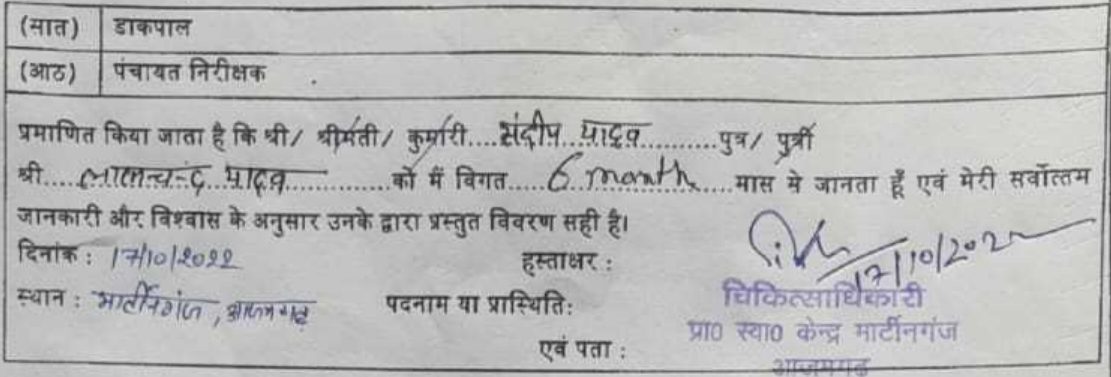 (सात) डाकपाल
(आठ) पंचायत निरीक्षक
प्रमाणित किया जाता है कि श्री/ श्रीमती/ कुमारी....संदीप यादव..........पुत्र/ पुत्री
श्री.....लालचन्द यादव..............को मैं विगत.....6 month.....मास मे जानता हूँ एवं मेरी सर्वोत्तम
जानकारी और विश्वास के अनुसार उनके द्वारा प्रस्तुत विवरण सही है।
दिनांक : 17/10/2022 हस्ताक्षर : 17/10/202
स्थान : मार्टीनगंज, आजमगढ़ पदनाम या प्रास्थिति: चिकित्साधिकारी
प्रा0 स्वा0 केन्द्र मार्टीनगंज
एवं पता : आजमगढ़